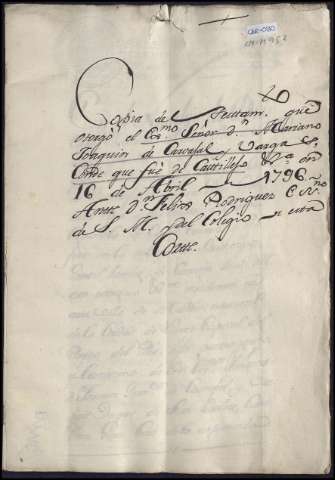 Copia de Testamto que
otorgó el Exmo Señor Dn Mariano
Joaquin de Carvajal y Vargas
Conde que fué de Castillejo en
16 de Abril 1796
Ante Dn Felix Rodriguez
de S. M. y del Colegio de esta
Corte.